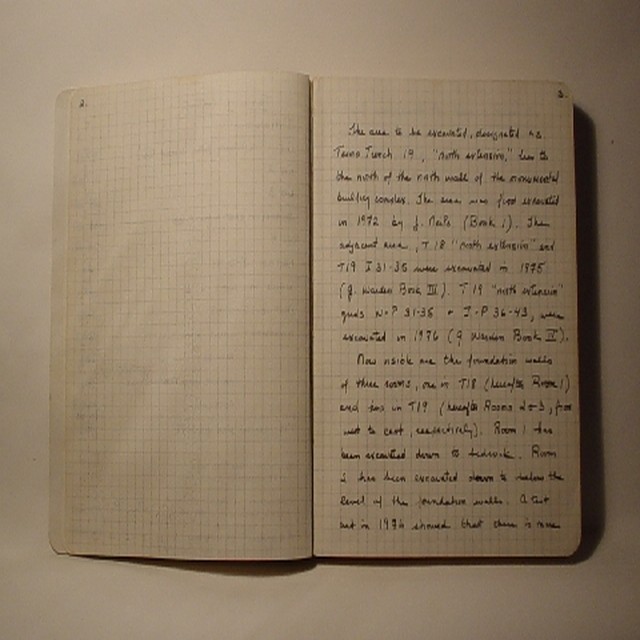 2.
3.
The area to be excavated, designated as
Tesoro Trench 19, "north extension," lies to
the north of the north wall of the monumental
building complex. The area was first excavated
in 1972 by J. Neils (Book 1). The
adjacent area, T18 "north extension" and
T19 I 31-35 were excavated in 1975
(G. Warden Book III). T19 "north extension"
grids N-P 31-35 + I-P 36-43, were
excavated in 1976 (G Warden Book IV).
Now visible are the foundation walls
of three rooms, one in T18 (hereafter Room 1)
and two in T19 (hereafter Rooms 2+3, from
west to east, respectively). Room 1 has
been excavated down to bedrock. Room
2 has been excavated down to below the
level of the foundation walls. A test
cut in 1976 showed that there is more